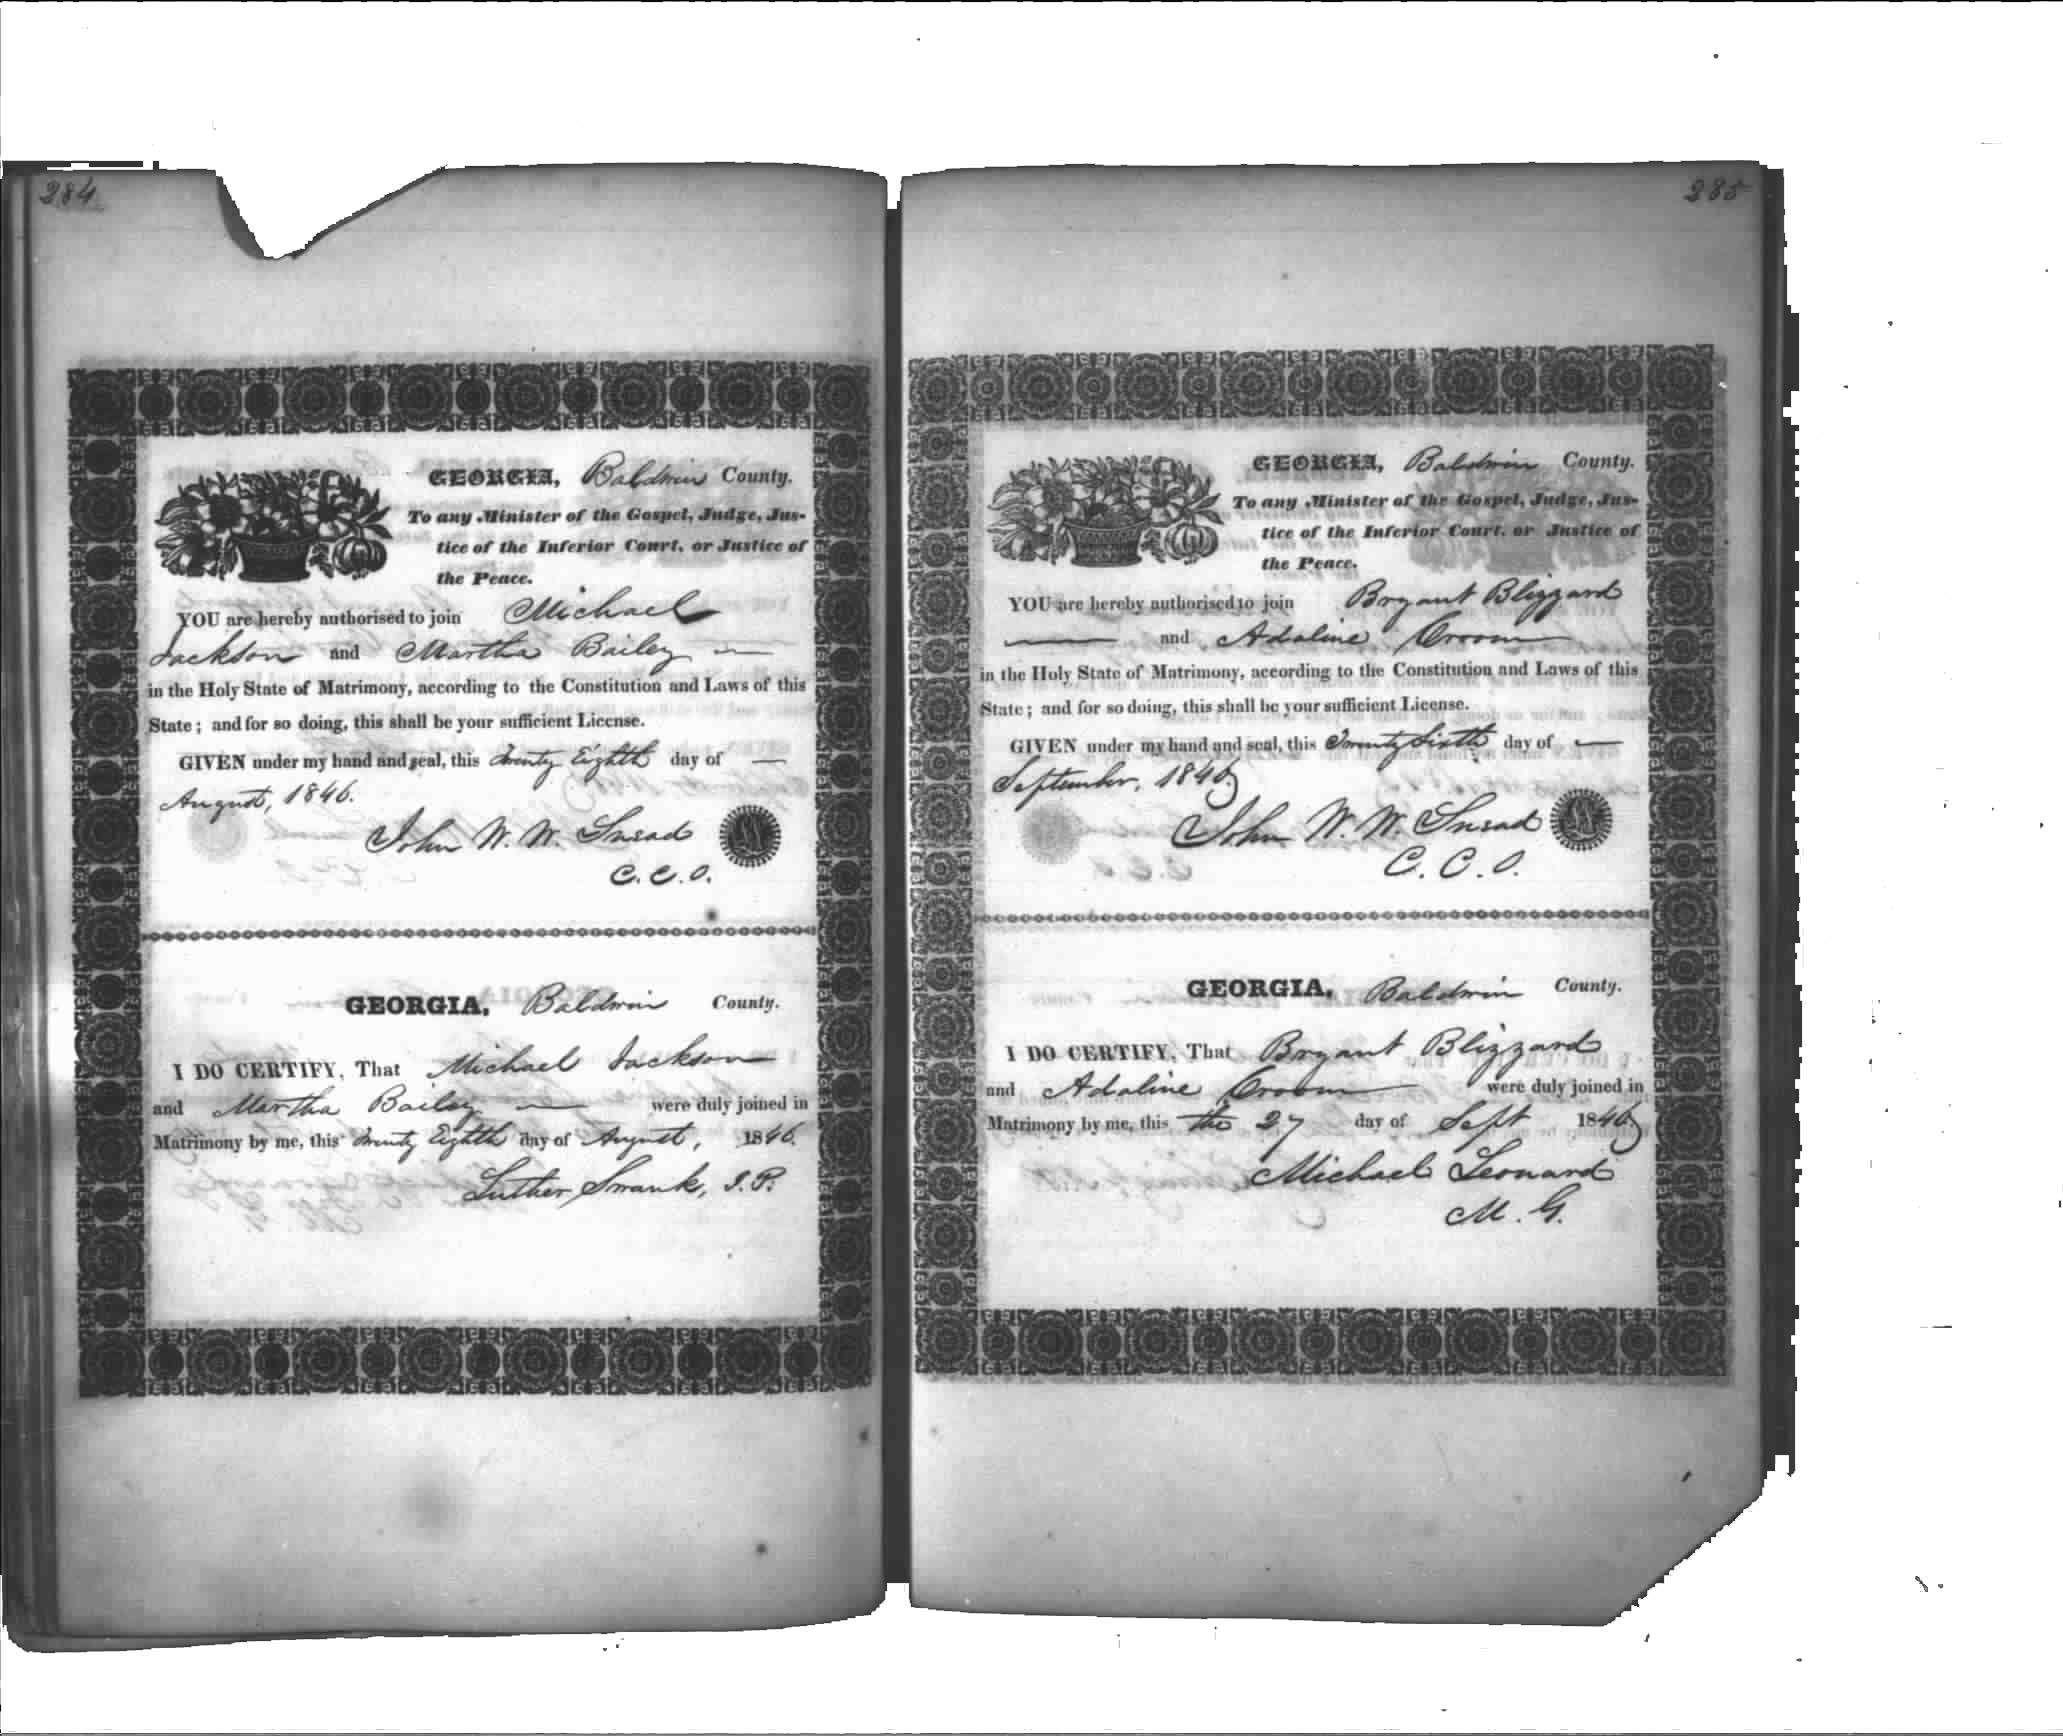 284
GEORGIA, Baldwin County.
To any Minister of the Gospel, Judge, Jus-
tice of the Inferior Court, or Justice of
the Peace.
YOU are hereby authorised to join Michael
Jackson and Martha Bailey
in the Holy State of Matrimony, according to the Constitution and Laws of this
State; and for so doing, this shall be your sufficient License.
GIVEN under my hand and seal, this Twenty Eighth day of
August, 1846.
John W. W. Snead
C. C. O.
GEORGIA, Baldwin County.
I DO CERTIFY, That Michael Jackson
and Martha Bailey were duly joined in
Matrimony by me, this Twenty Eighth day of August, 1846.
Luther Swank, J. P.
285
GEORGIA, Baldwin County.
To any Minister of the Gospel, Judge, Jus-
tice of the Inferior Court, or Justice of
the Peace.
YOU are hereby authorised to join Bryant Blizzard
and Adaline Croom
in the Holy State of Matrimony, according to the Constitution and Laws of this
State; and for so doing, this shall be your sufficient License.
GIVEN under my hand and seal, this Twenty Sixth day of
September, 1846
John W. W. Snead
C. C. O.
GEORGIA, Baldwin County.
I DO CERTIFY, That Bryant Blizzard
and Adaline Croom were duly joined in
Matrimony by me, this the 27 day of Sept 1846
Michael Leonard
M. G.